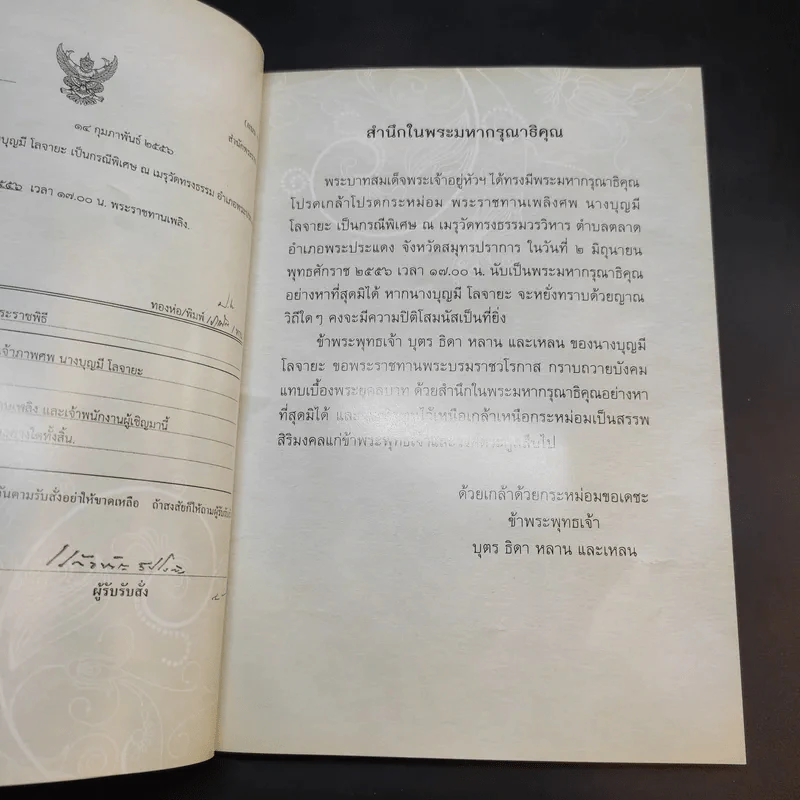 ๑๔ กุมภาพันธ์ ๒๕๕๖
บุญมี โลจายะ เป็นกรณีพิเศษ ณ เมรุวัดทรงธรรม อำเภอพระประแดง
เวลา ๑๗.๐๐ น. พระราชทานเพลิง.
ทองห่อ/พิมพ์
ระราชพิธี
จ้าภาพศพ นางบุญมี โลจายะ
เพลิง และเจ้าพนักงานผู้เชิญมานี้
ทั้งสิ้น.
ตามรับสั่งอย่าให้ขาดเหลือ ถ้าสงสัยก็ให้ถามผู้รับรับสั่ง
ผู้รับรับสั่ง
สำนึกในพระมหากรุณาธิคุณ
พระบาทสมเด็จพระเจ้าอยู่หัวฯ ได้ทรงมีพระมหากรุณาธิคุณ
โปรดเกล้าโปรดกระหม่อม พระราชทานเพลิงศพ นางบุญมี
โลจายะ เป็นกรณีพิเศษ ณ เมรุวัดทรงธรรมวรวิหาร ตำบลตลาด
อำเภอพระประแดง จังหวัดสมุทรปราการ ในวันที่ ๒ มิถุนายน
พุทธศักราช ๒๕๕๖ เวลา ๑๗.๐๐ น. นับเป็นพระมหากรุณาธิคุณ
อย่างหาที่สุดมิได้ หากนางบุญมี โลจายะ จะหยั่งทราบด้วยญาณ
วิถีใดๆ คงจะมีความปิติโสมนัสเป็นที่ยิ่ง
ข้าพระพุทธเจ้า บุตร ธิดา หลาน และเหลน ของนางบุญมี
โลจายะ ขอพระราชทานพระบรมราชวโรกาส กราบถวายบังคม
แทบเบื้องพระยุคลบาท ด้วยสำนึกในพระมหากรุณาธิคุณอย่างหา
ที่สุดมิได้ และ ไว้เหนือเกล้าเหนือกระหม่อมเป็นสรรพ
สิริมงคลแก่ข้าพระพุทธเจ้าและ สืบไป
ด้วยเกล้าด้วยกระหม่อมขอเดชะ
ข้าพระพุทธเจ้า
บุตร ธิดา หลาน และเหลน